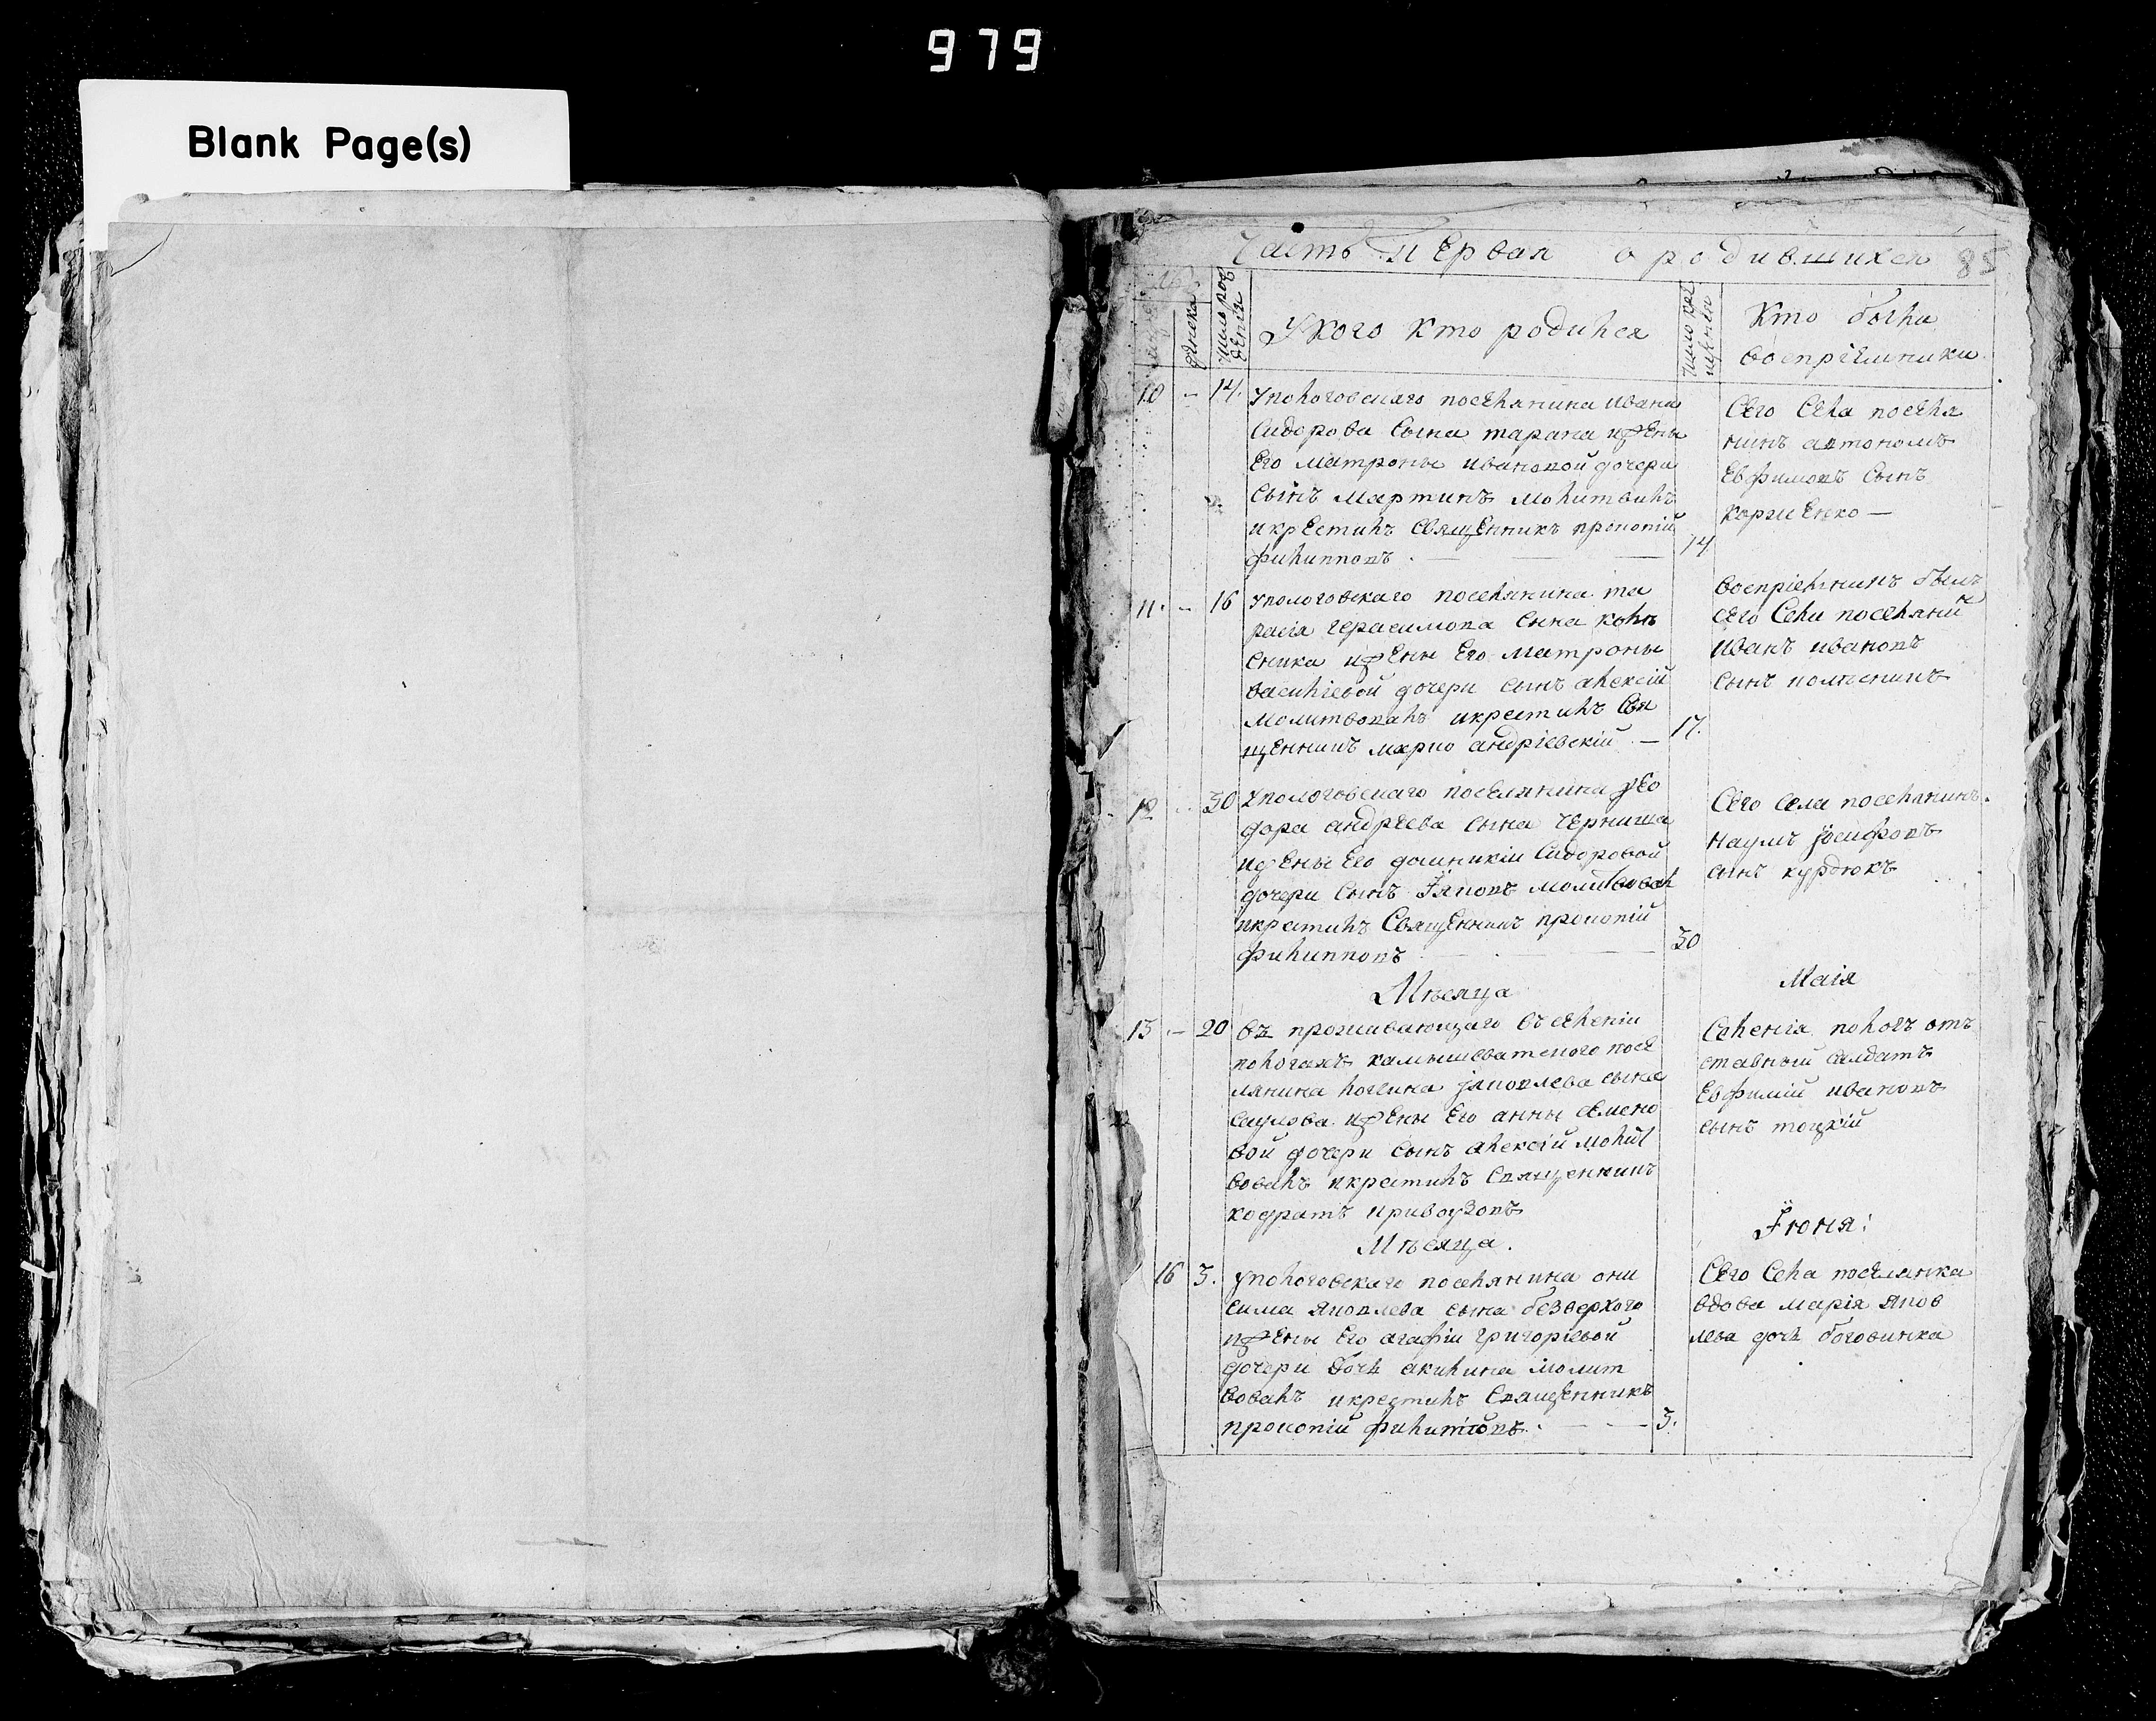 979
Blank Page(s)
Часть Первая о родившихся 85
№
женска
число рождения
У кого кто родился
число крещения
Кто были
восприемники
10 - 14. У пологовскаго поселянина ивана
Сидорова Сына тарана и жены
Его матроны ивановой дочери
Сынъ мартинъ молитвилъ
и крестилъ Священникъ прокопій
филипповъ. 14
Сего Села поселя
нинъ автономъ
Евфимовъ Сынъ
коргиенко —
11. - 16 У пологовскаго поселянина та
расія герасимова Сына колѣ
сника и жены Его матроны
василіевой дочери сынъ алексій
молитвовалъ и крестилъ Свя
щенникъ марко андріевскій — 17.
Воспріемникъ былъ
сего Села поселянинъ
иванъ ивановъ
сынъ
12 - 30 У пологовскаго поселянина Ѳео
дора андрѣева сына черниша
и жены Его домникіи Сидоровой
дочери Сынъ Іяковъ молитвовалъ
и крестилъ Священникъ прокопій
филипповъ 30
Сего села поселянинъ
наумъ іосифовъ
сынъ курдюкъ
Мѣсяца
Маія
13 - 20 въ проживающаго въ селеніи
пологахъ камышеватского посе
лянина логина іяковлева сына
саулова и жены Его анны семено
вой дочери сынъ алексій молит
вовалъ и крестилъ Священникъ
кодратъ
Селенія пологъ от
ставный салдатъ
Евфимій ивановъ
сынъ тоцкій
Мѣсяца.
Іюня:
16 3. У пологовскаго поселянина они
сима яковлева сына безверхого
и жены Его агафіи григоріевой
дочери дочь акилина молит
вовалъ и крестилъ Священникъ
прокопій филиповъ. — 3.
Сего Села поселянка
вдова марія яков
лева дочь боговинка